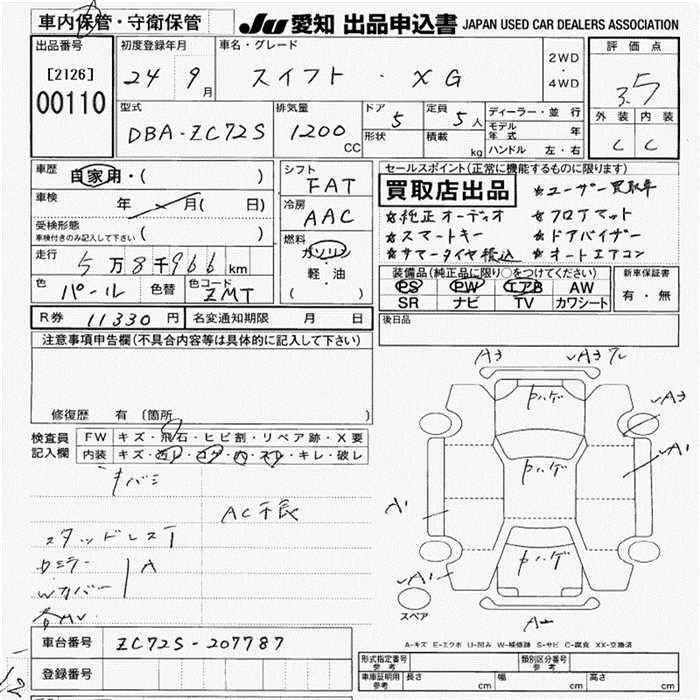 車内保管・守衛保管
JU 愛知 出品申込書 JAPAN USED CAR DEALERS ASSOCIATION
出品番号
[2126]
00110
初度登録年月
24 9月
車名・グレード
スイフト ・ XG
2WD
・
4WD
評価点
3.5
外装 内装
C C
型式
DBA-ZC72S
排気量
1200 CC
ドア 5
形状
定員 5人
積載 kg
ディーラー・並行
モデル年式 年
ハンドル 左・右
車歴
自家用・( )
車検
年 月( 日)
受検形態
車検付きのみ記入して下さい ( )
走行
5万8千966km
色 パール
色替
色コード ZMT
シフト
FAT
冷房
AAC
燃料
ガソリン
軽・油
( )
セールスポイント(正常に機能するものに限ります)
買取店出品
☆ユーザー買取車
☆純正オーディオ ☆フロアマット
☆スマートキー ☆ドアバイザー
☆サマータイヤ積込 ☆オートエアコン
装備品(純正品に限り○をつけてください)
PS PW エアB AW
SR ナビ TV カワシート
新車保証書
有・無
R券 11330円
名変通知期限 月 日
後日品
注意事項申告欄(不具合内容等は具体的に記入して下さい)
修復歴 有 〔箇所 〕
検査員
記入欄
FW キズ・飛石・ヒビ割・リペア跡・X要
内装 キズ・汚レ・コゲ・穴・スレ・キレ・破レ
AC不良
スタッドレス
Wカバー
A
A3
√A3
√A3
√A1
A1
√A1
スペア
A-キズ E-エクボ U-凹み W-補修跡 S-サビ C-腐食 XX-交換済
車台番号 ZC72S-207787
登録番号
形式指定番号
参考
類別区分番号
参考
車庫証明用
参考
長さ cm
幅 cm
高さ cm